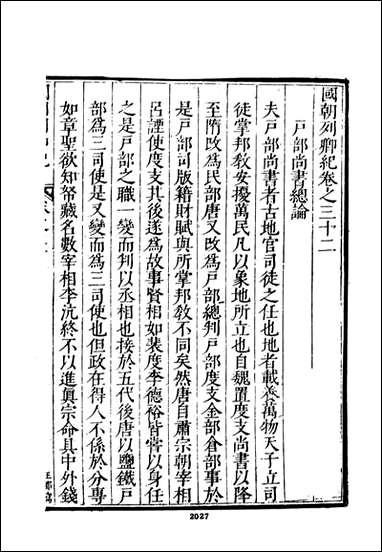 國朝列卿紀卷之三十二
戶部尚書總論
夫戶部尚書者古地官司徒之任也地者載養萬物天子立司
徒掌邦教安擾萬民凡以象地所立也自魏置度支尚書以降
至隋改為民部唐又改為戶部總判戶部度支金部倉部事於
是戶部司版籍財賦與所掌邦教不同矣然唐自肅宗朝宰相
呂諲使度支其後遂為故事賢相如裴度李德裕皆嘗以身任
之是戶部之職一變而判以丞相也接於五代後唐以鹽鐵戶
部為三司使是又變而為三司使也但政在得人不係於分專
如章聖欲知帑藏名數宰相李沆終不以進眞宗命具中外錢
2027